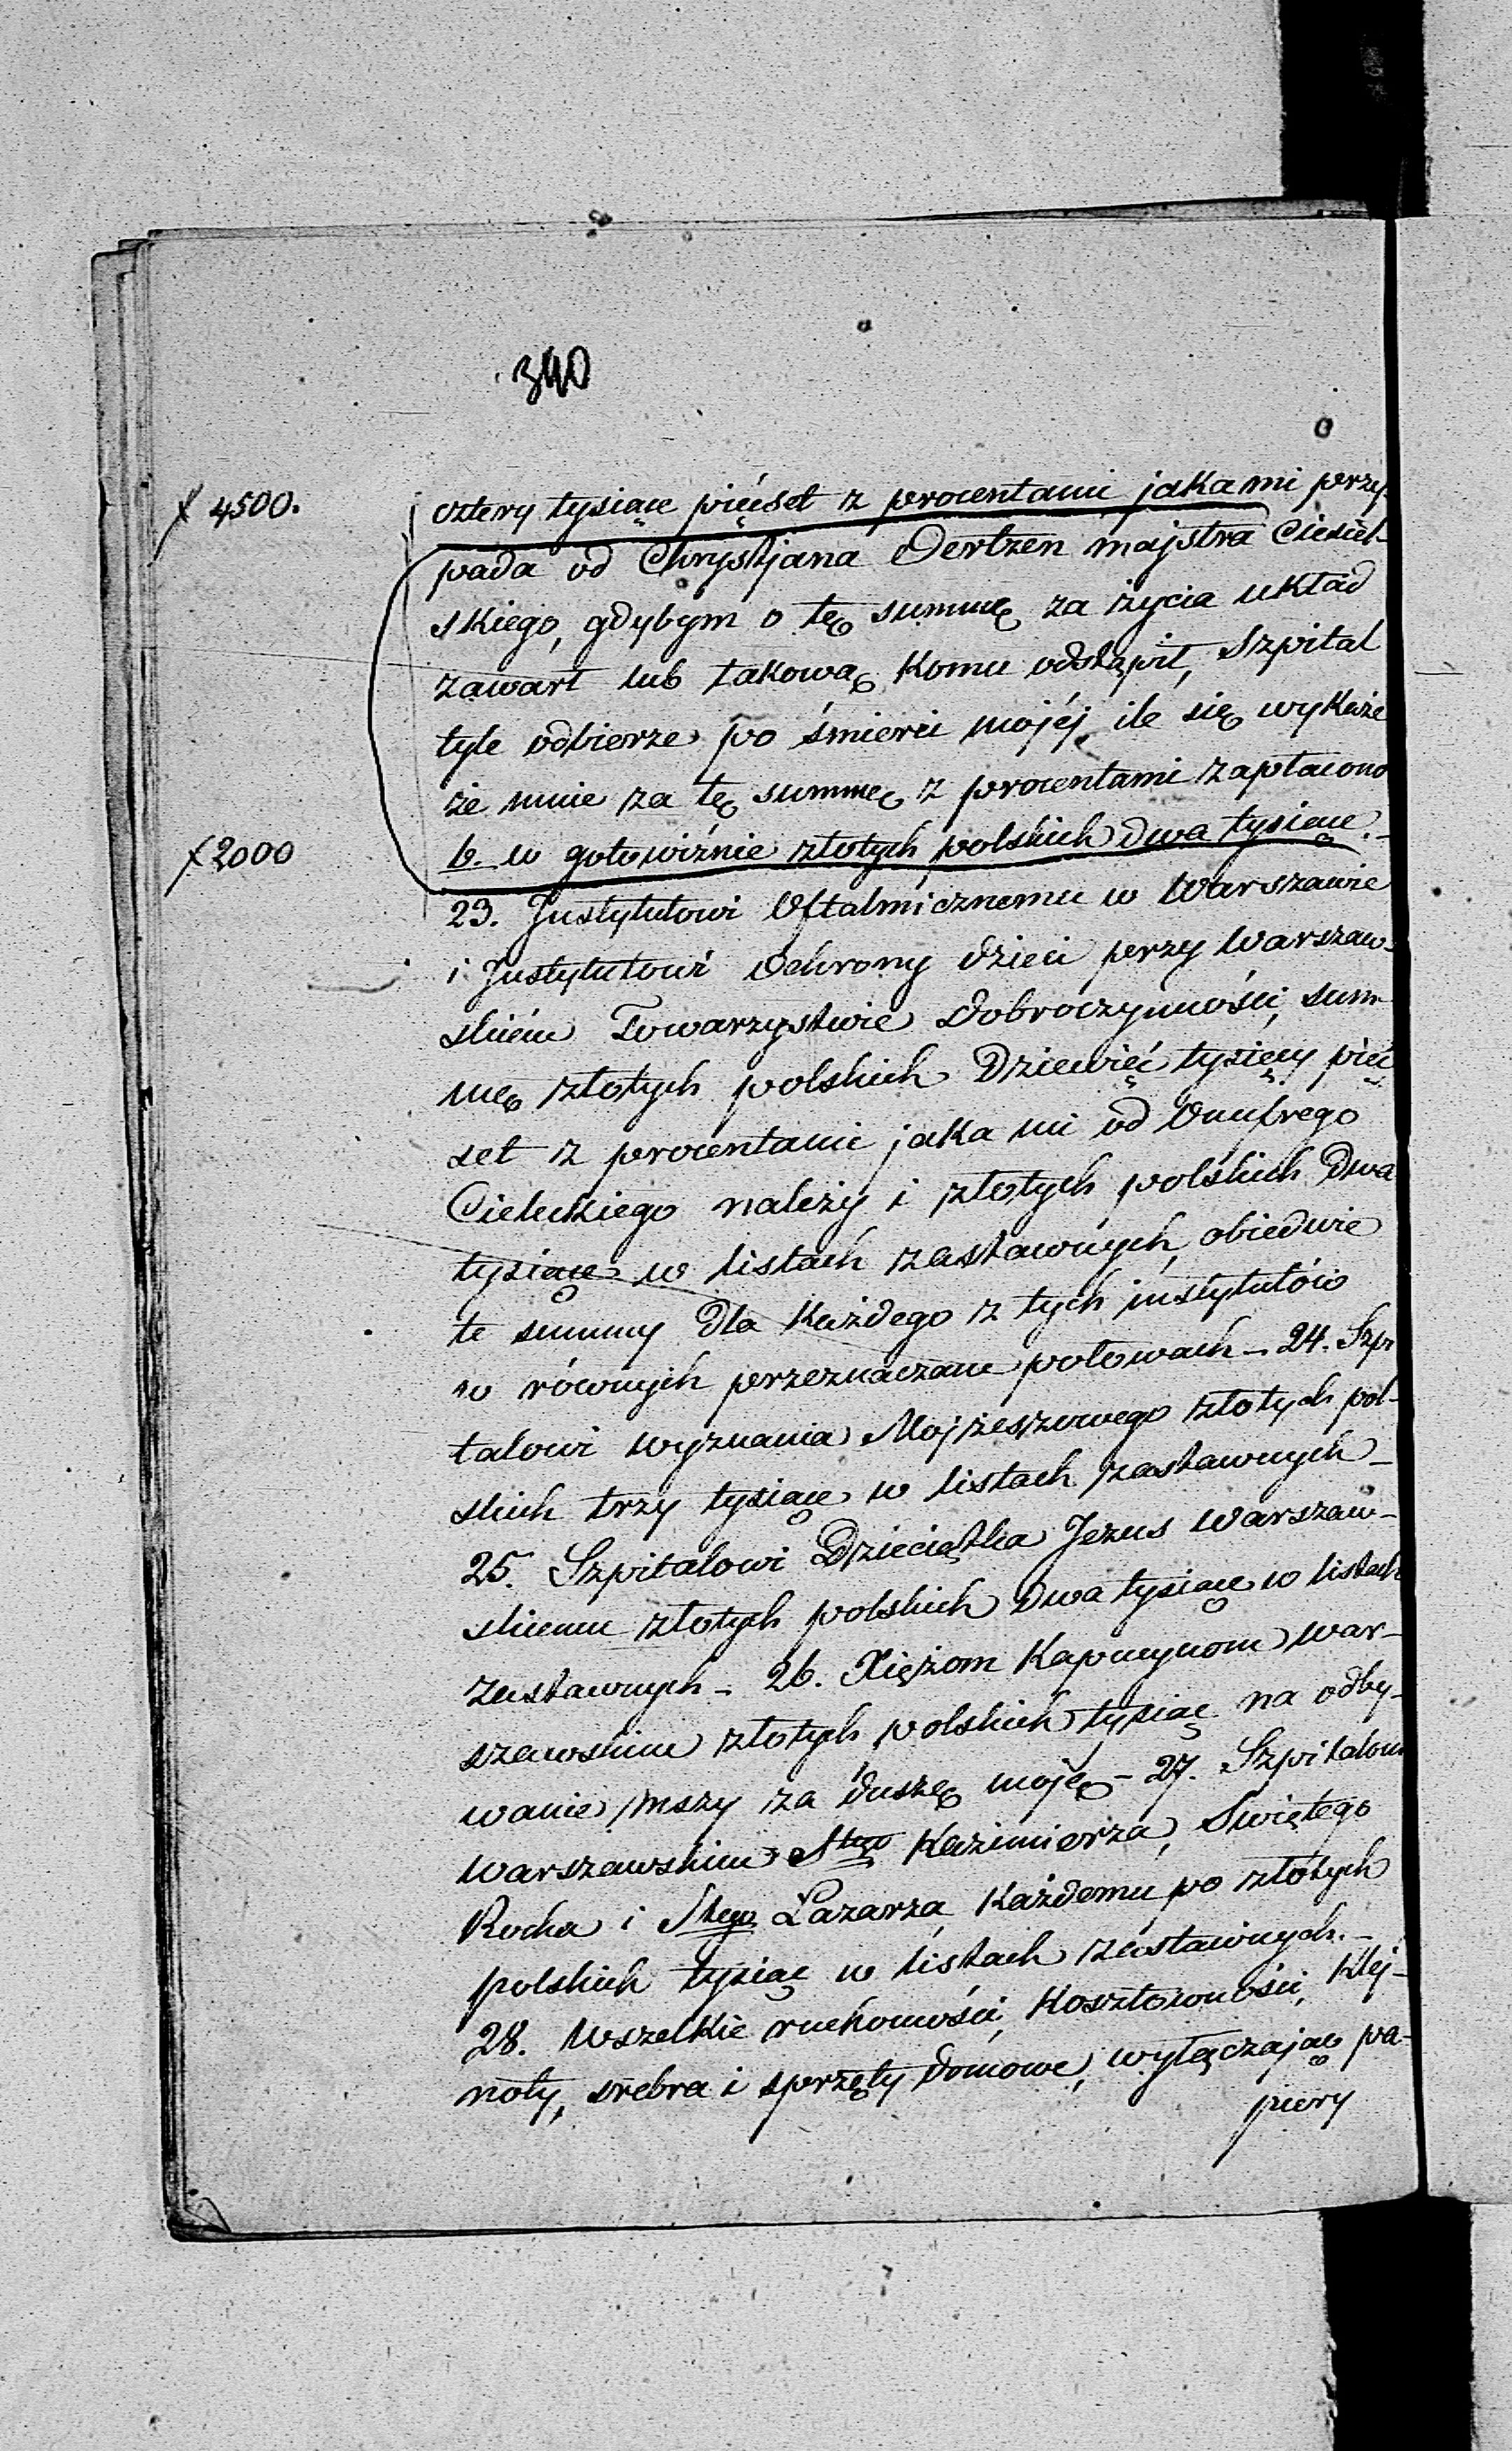 340
4500.
cztery tysiące pięćset z procentami jaka mi przy-
pada od Chrystjana Oertzen majstra Ciesiel-
skiego, gdybym o tę summę za życia układ
zawarł lub takową komu odstąpił, Szpital
tyle odbierze po śmierci mojéj ile się wykaże
że mnie za tę summę z procentami zapłacono
2000
b. w gotowiźnie złotych polskich dwa tysiące.-
23. Instytutowi Oftalmicznemu w Warszawie
i Instytutowi Ochrony dzieci przy Warszaw-
skiém Towarzystwie Dobroczynności, sum-
mę złotych polskich Dziewięć tysięcy pięć
set z procentami jaka mi od Onufrego
Cieleckiego należy i złotych polskich dwa
tysiące w listach zastawnych, obiedwie
te summy dla każdego z tych instytutów
w równych przeznaczam połowach - 24. Szpi
talowi wyznania Mojżeszowego złotych pol-
skich trzy tysiące w listach zastawnych -
25. Szpitalowi Dzieciątka Jezus Warszaw-
skiemu złotych polskich dwa tysiące w listach
zastawnych - 26. Xiężom Kapucynom War-
szawskim złotych polskich tysiąc na odby-
wanie mszy za duszę moję - 27. Szpitalom
Warszawskim Stego Kazimierza, Świętego
Rocha i Stego Łazarza, każdemu po złotych
polskich tysiąc w listach zastawnych. -
28. Wszelkie ruchomości, kosztowności, klej-
noty, srebra i sprzęty domowe, wyłączając pa-
piery